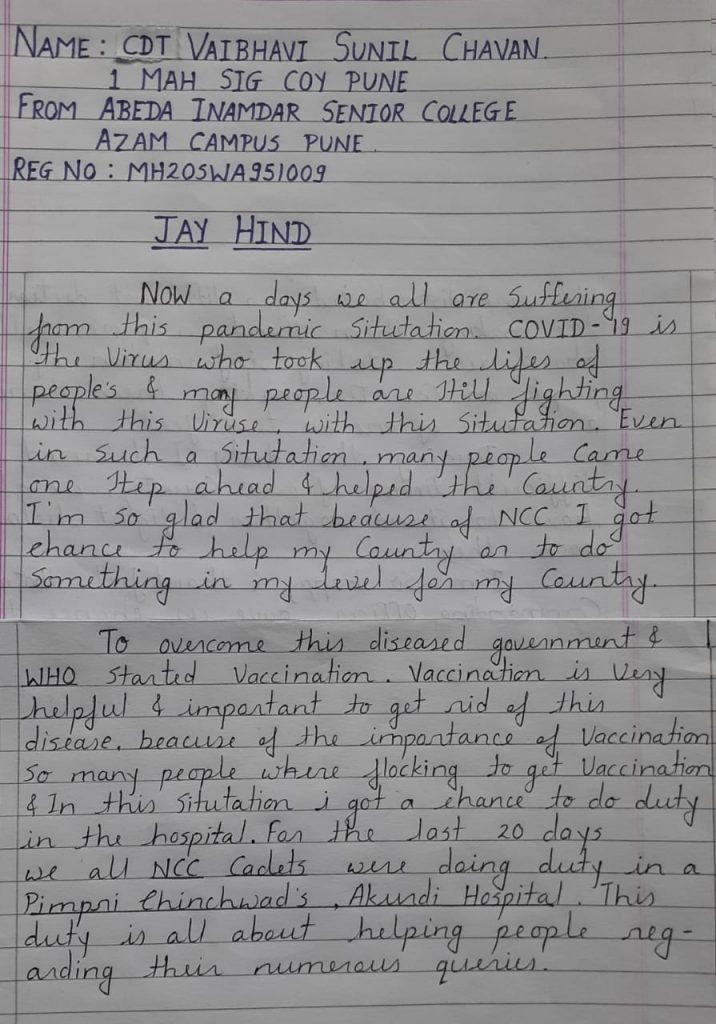 NAME : CDT VAIBHAVI SUNIL CHAVAN.
1 MAH SIG COY PUNE
FROM ABEDA INAMDAR SENIOR COLLEGE
AZAM CAMPUS PUNE.
REG NO : MH20SWA951009
JAY HIND
NOW a days we all are Suffering
from this pandemic Situtation. COVID-19 is
the Virus who took up the lifes of
people's & many people are Still fighting
with this Viruse, with this Situtation. Even
in Such a Situtation. many people Came
one Step ahead & helped the Country.
I'm so glad that beacuse of NCC I got
chance to help my Country or to do
Something in my level for my Country.
To overcome this diseased government &
WHO Started Vaccination. Vaccination is Very
helpful & important to get rid of this
disease. beacuse of the importance of Vaccination
So many people where flocking to get Vaccination
& In this Situtation i got a chance to do duty
in the hospital. For the last 20 days
we all NCC Cadets were doing duty in a
Pimpri Chinchwad's, Akurdi Hospital. This
duty is all about helping people reg-
arding their numerous queries.